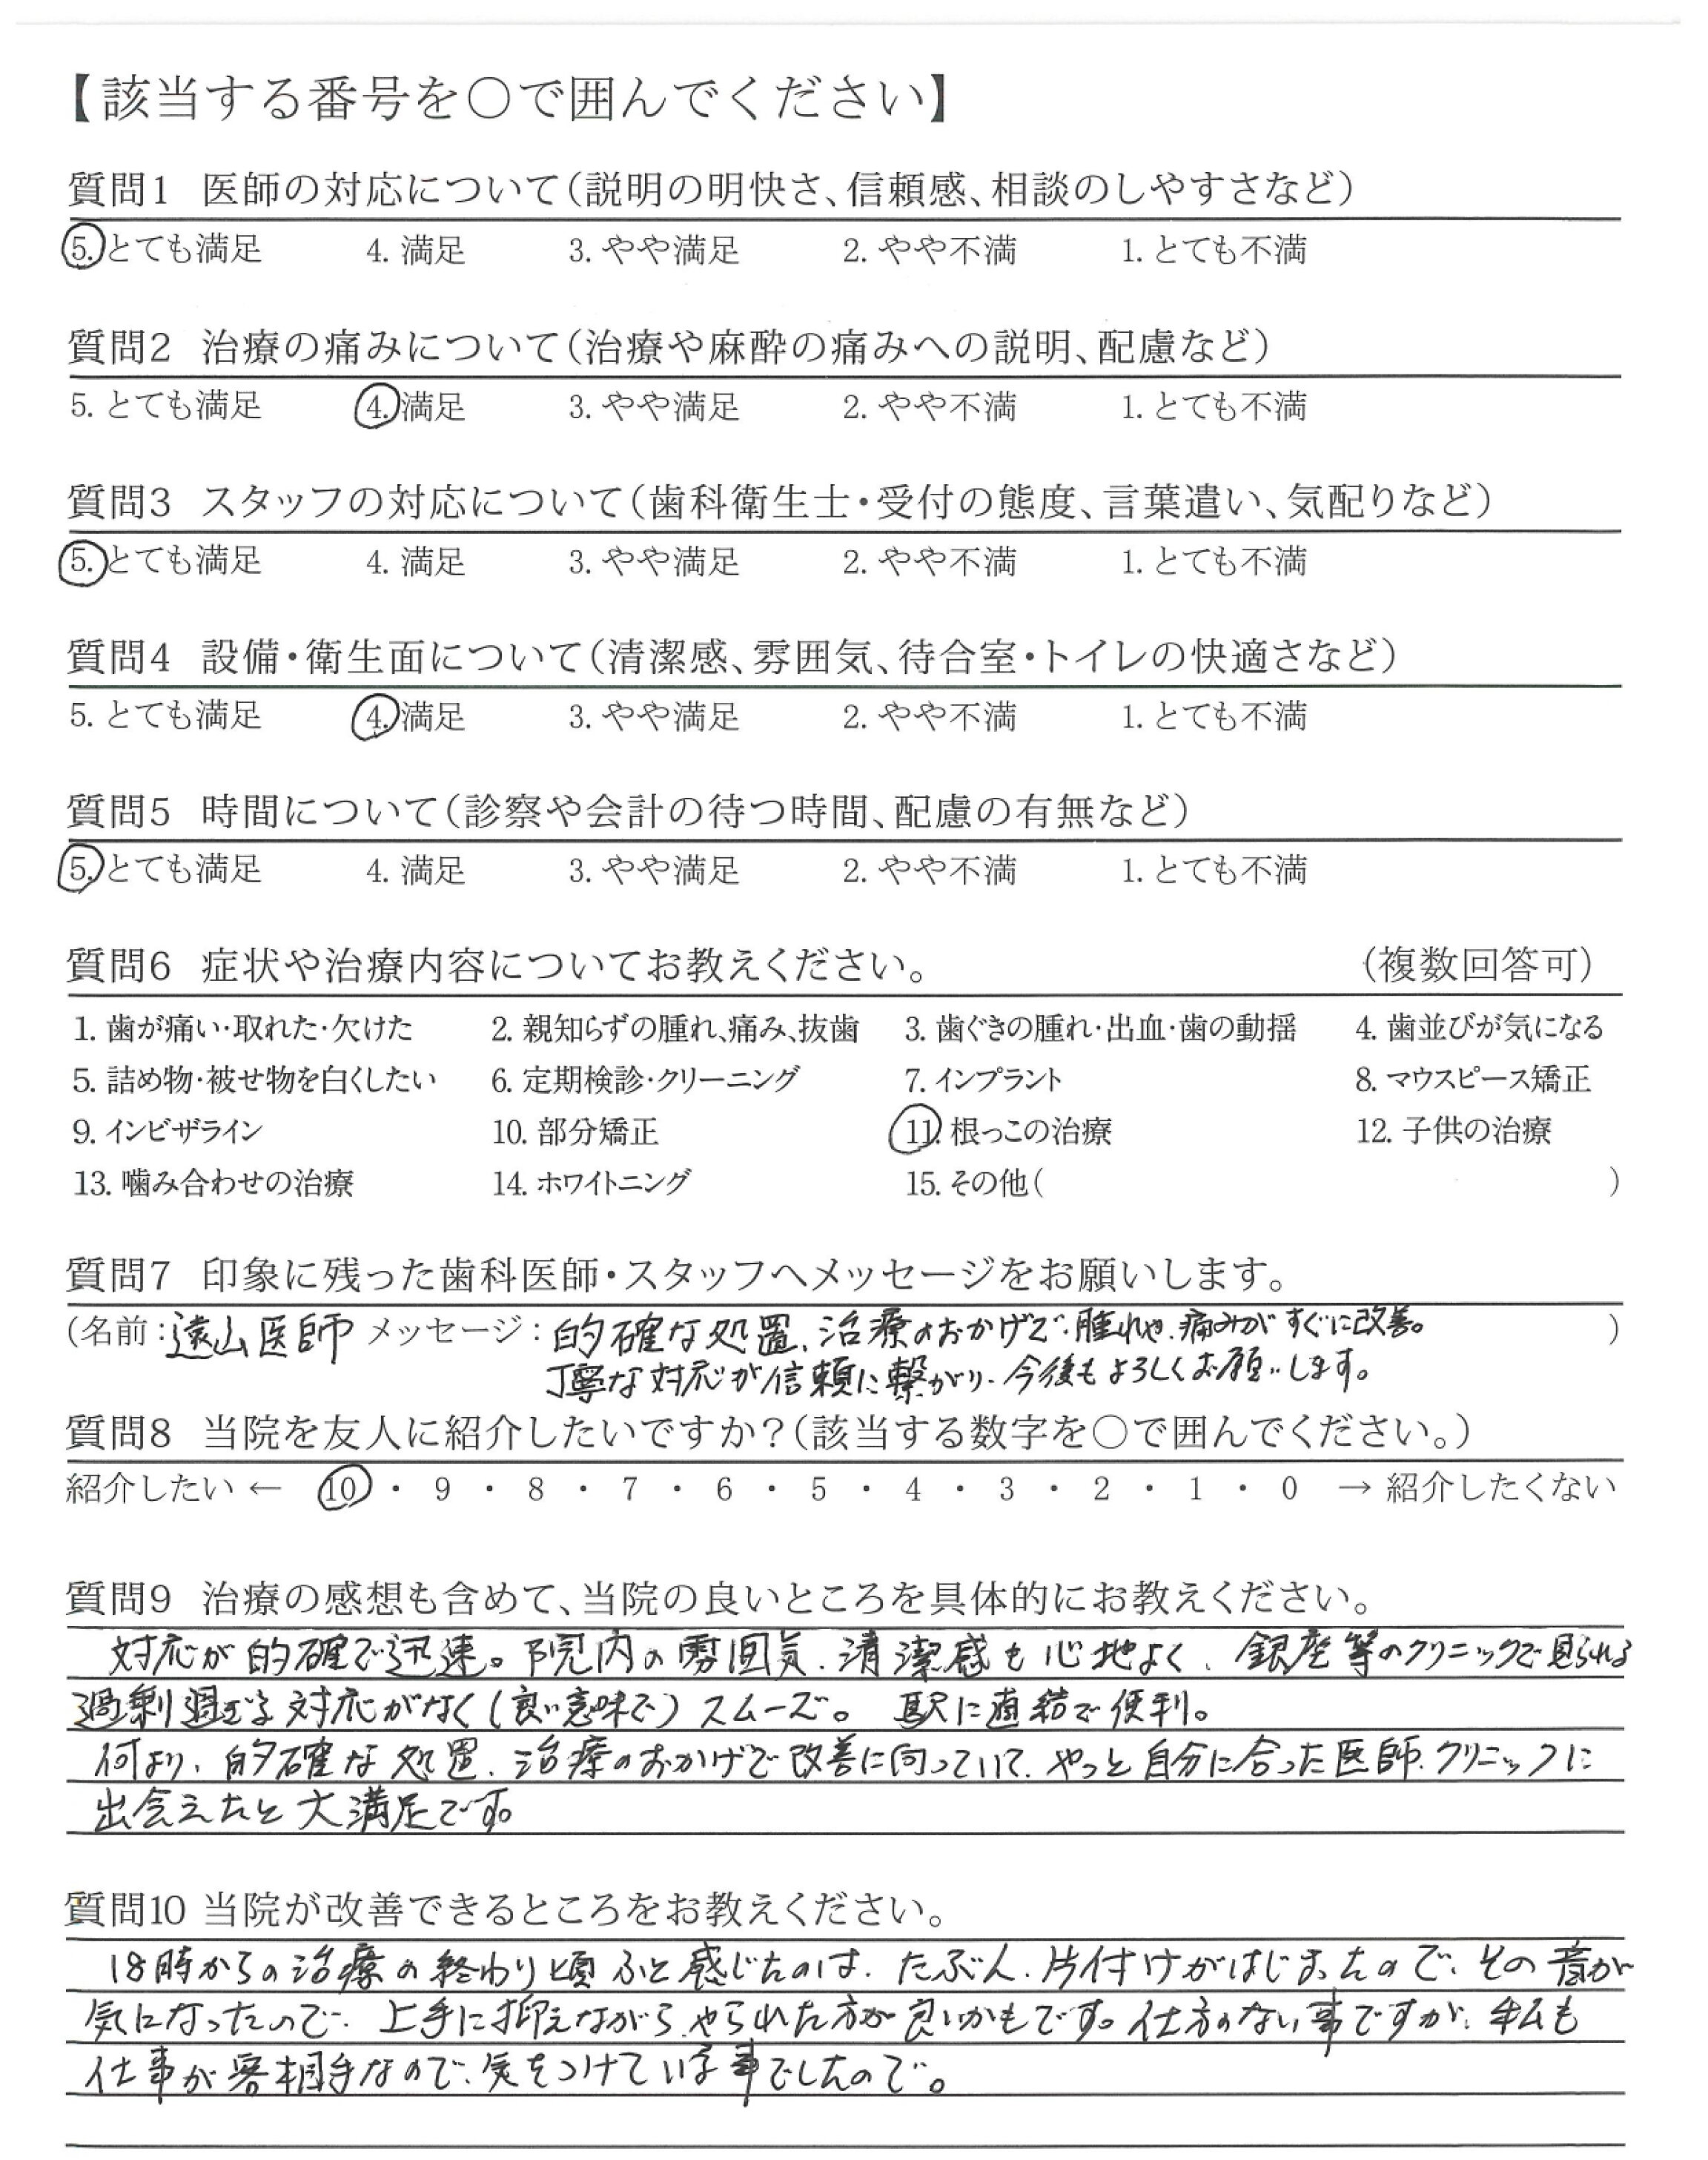 【該当する番号を〇で囲んでください】
質問1 医師の対応について（説明の明快さ、信頼感、相談のしやすさなど）
5. とても満足 4. 満足 3. やや満足 2. やや不満 1. とても不満
質問2 治療の痛みについて（治療や麻酔の痛みへの説明、配慮など）
5. とても満足 4. 満足 3. やや満足 2. やや不満 1. とても不満
質問3 スタッフの対応について（歯科衛生士・受付の態度、言葉遣い、気配りなど）
5. とても満足 4. 満足 3. やや満足 2. やや不満 1. とても不満
質問4 設備・衛生面について（清潔感、雰囲気、待合室・トイレの快適さなど）
5. とても満足 4. 満足 3. やや満足 2. やや不満 1. とても不満
質問5 時間について（診察や会計の待つ時間、配慮の有無など）
5. とても満足 4. 満足 3. やや満足 2. やや不満 1. とても不満
質問6 症状や治療内容についてお教えください。 （複数回答可）
1. 歯が痛い・取れた・欠けた 2. 親知らずの腫れ、痛み、抜歯 3. 歯ぐきの腫れ・出血・歯の動揺 4. 歯並びが気になる
5. 詰め物・被せ物を白くしたい 6. 定期検診・クリーニング 7. インプラント 8. マウスピース矯正
9. インビザライン 10. 部分矯正 11. 根っこの治療 12. 子供の治療
13. 噛み合わせの治療 14. ホワイトニング 15. その他（ ）
質問7 印象に残った歯科医師・スタッフへメッセージをお願いします。
（名前：遠山医師 メッセージ：的確な処置、治療のおかげで、腫れや、痛みがすぐに改善。 ）
丁寧な対応が信頼に繋がり、今後もよろしくお願いします。
質問8 当院を友人に紹介したいですか？（該当する数字を〇で囲んでください。）
紹介したい ← 10 ・ 9 ・ 8 ・ 7 ・ 6 ・ 5 ・ 4 ・ 3 ・ 2 ・ 1 ・ 0 → 紹介したくない
質問9 治療の感想も含めて、当院の良いところを具体的にお教えください。
対応が的確で迅速。院内の雰囲気、清潔感も心地よく、銀座等のクリニックで見られる
過剰過ぎる対応がなく（良い意味で）スムーズ。 駅に直結で便利。
何より、的確な処置、治療のおかげで改善に向っていて、やっと自分に合った医師、クリニックに
出会えたと大満足です。
質問10 当院が改善できるところをお教えください。
18時からの治療の終わり頃ふと感じたのは、たぶん、片付けがはじまったので、その音が
気になったので、上手に抑えながらやられた方が良いかもです。仕方のない事ですが、私も
仕事が客相手なので、気をつけている事でしたので。